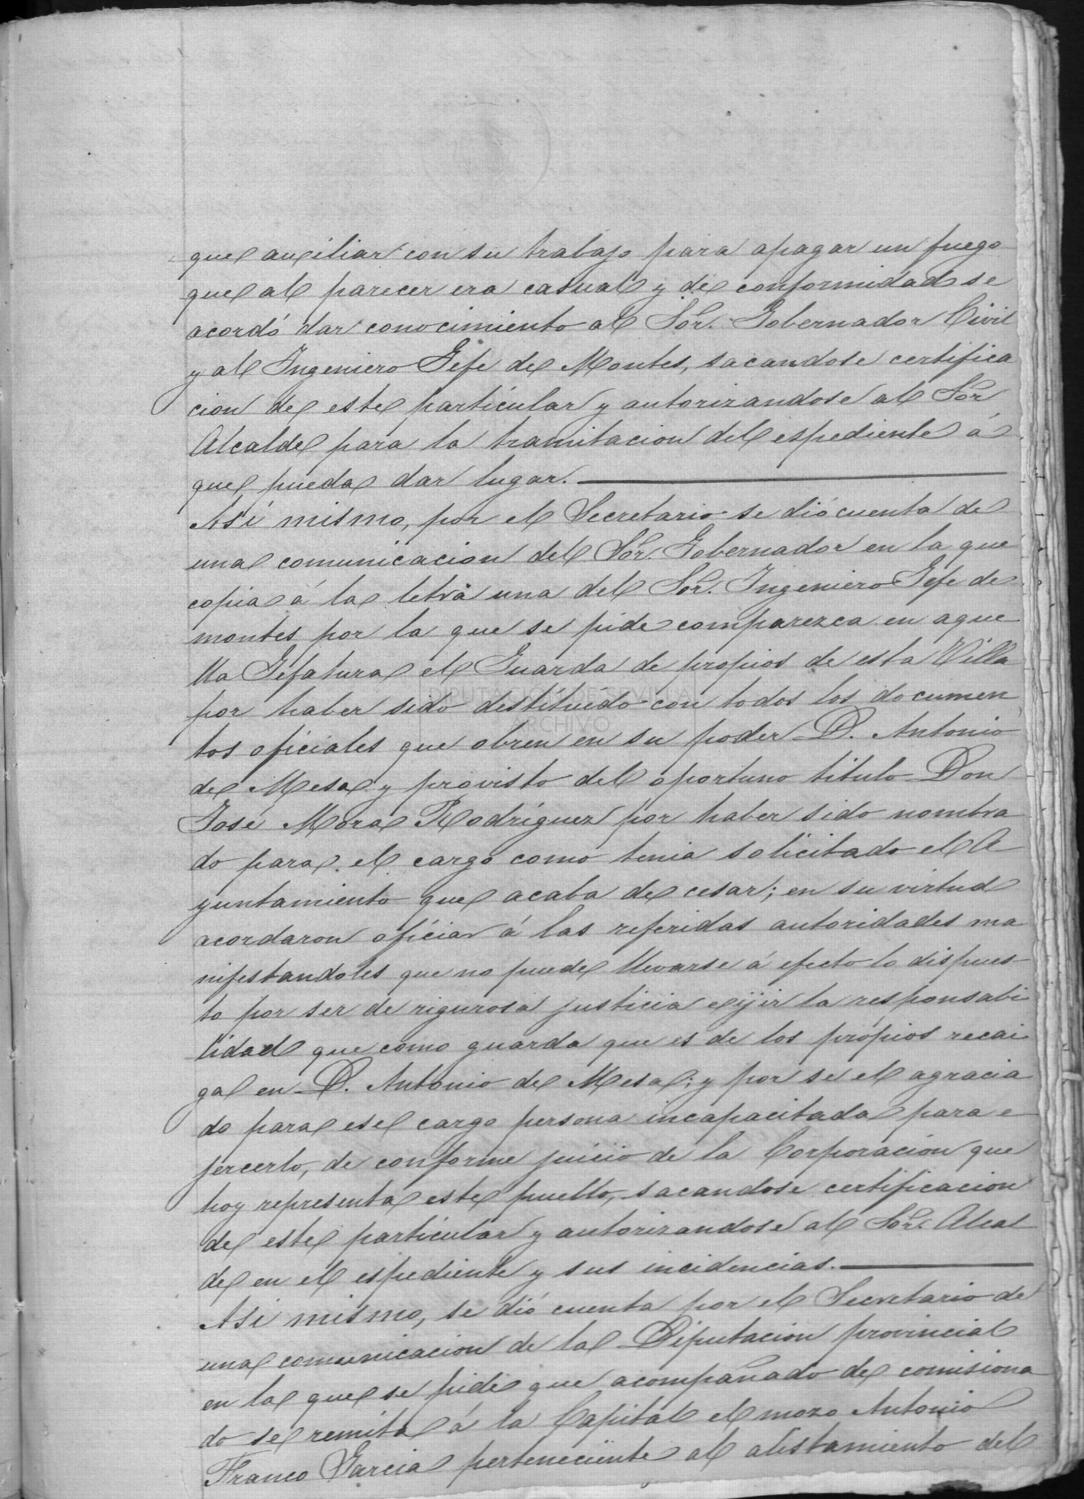 que auciliar con su trabajo para apagar un fuego
que al parecer era casual y de conformidad se
acordó dar conocimiento al Sór. Gobernador Civil
y al Ingeniero Gefe de Montes, sacandose certifica
cion de este particular y autorizandose al Sor
Alcalde para la tramitacion del espediente á
que pueda dar lugar.
Asi mismo, por el Secretario se dió cuenta de
una comunicacion del Sór. Gobernador en la que
copia á la letra una del Sor. Ingeniero Gefe de
montes por la que se pide comparezca en aque
lla Gefatura el Guarda de propios de esta Villa
por haber sido destituido con todos los documen
tos oficiales que obren en su poder D. Antonio
de Mesa y provisto del oportuno titulo Don
José Mora Rodríguez por haber sido nombra
do para el cargo como tenia solicitado el A
yuntamiento que acaba de cesar; en su virtud
acordaron oficiar á las referidas autoridades ma
nifestandoles que no puede llevarse á efecto lo dispues
to por ser de rigurosa justicia exijir la responsabi
lidad que como guarda que es de los própios recai
ga en D. Antonio de Mesa; y por se el agracia
do para ese cargo persona incapacitada para e
jercerlo, de conforme juicio de la Corporacion que
hoy representa este pueblo, sacandose certificacion
de este particular y autorizandose al Sor. Alcal
de en el espediente y sus incidencias.
Asi mismo, se dió cuenta por el Secretario de
una comunicacion de la Diputacion provincial
en la que se pide que acompañado de comisiona
do se remita á la Capital el mozo Antonio
Franco Garcia perteneciente al alistamiento del
DIPUTACIÓN DE SEVILLA
ARCHIVO